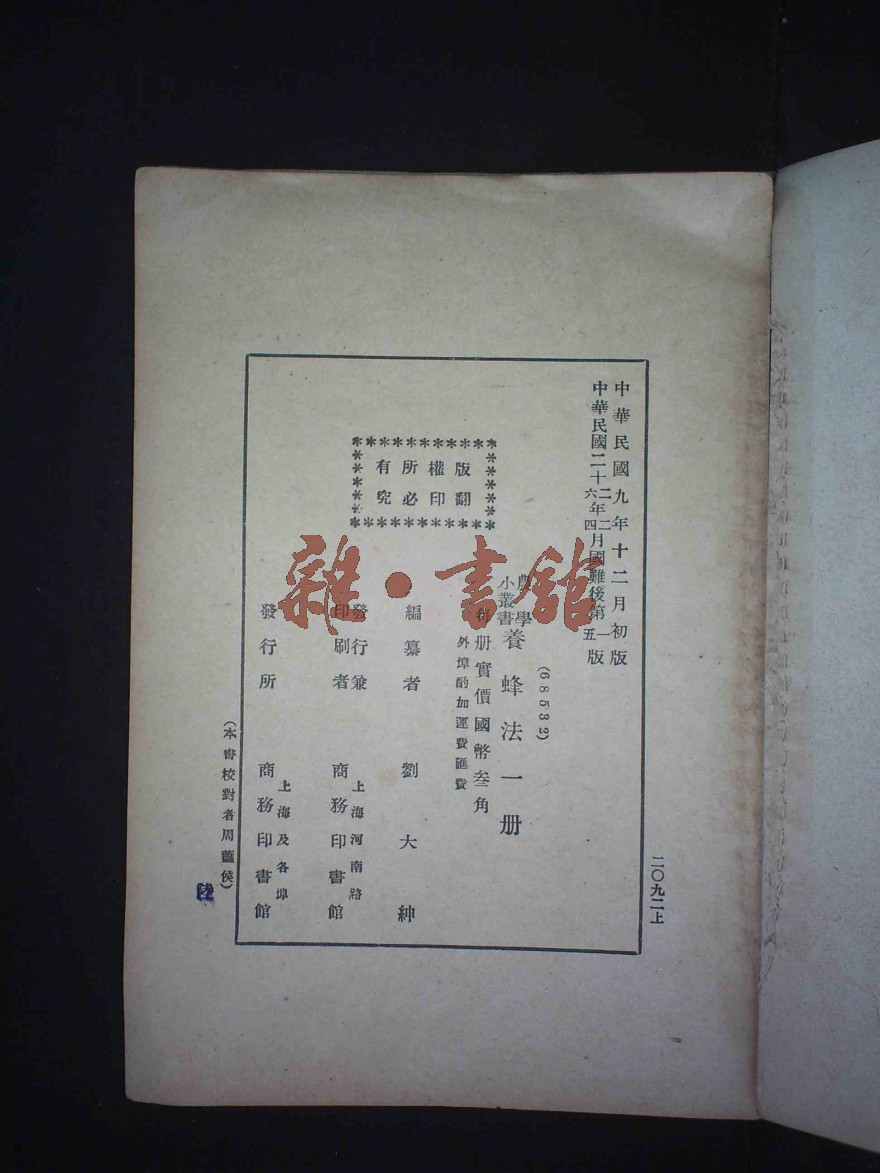 二〇九二上
中華民國九年十二月初版
中華民國二十二年二月國難後第一版
六四五
版權所有
翻印必究
(68532)
農學
小叢書
養蜂法一册
册實價國幣叁角
外埠酌加運費匯費
編纂者 劉大紳
發行兼
印刷者
上海河南路
商務印書館
發行所
上海及各埠
商務印書館
(本書校對者周侯)
雜·書館